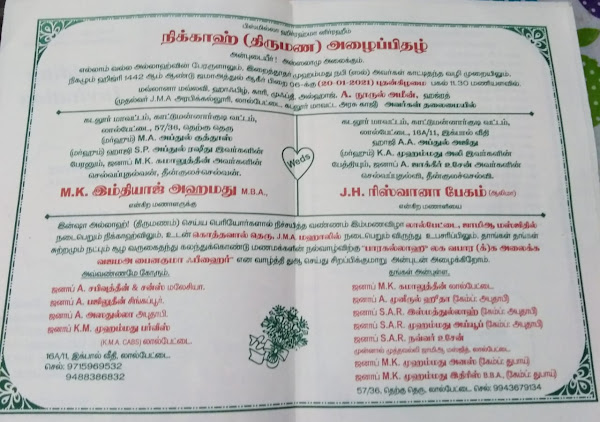 பிஸ்மில்லா ஹிர்ரஹ்மா னிர்ரஹீம்
நிக்காஹ் (திருமண) அழைப்பிதழ்
அன்புடையீர்! அஸ்ஸலாமு அலைக்கும்.
எல்லாம் வல்ல அல்லாஹ்வின் பேரருளாலும், இறைத்தூதர் முஹம்மது நபி (ஸல்) அவர்கள் காட்டித்தந்த வழி முறையிலும்,
நிகழும் ஹிஜ்ரி 1442 ஆம் ஆண்டு ஜமாஅத்துல் ஆகிர் பிறை 06-க்கு (20-01-2021) புதன்கிழமை பகல் 11.30 மணியளவில்.
மௌலானா மௌலவி, ஹாஃபிழ், காரி, முஃப்தி, அல்ஹாஜ். A. நூருல் அமீன். ஹஜ்ரத்
(முதல்வர் J.M.A அரபிக்கல்லூரி, லால்பேட்டை, கடலூர் மாவட்ட அரசு காஜி) அவர்கள் தலைமையில்
கடலூர் மாவட்டம், காட்டுமன்னார்குடி வட்டம்,
லால்பேட்டை, 57/36, தெற்கு தெரு
(மர்ஹும்) M.A. அப்துல் குத்தூஸ்
(மர்ஹும்) ஹாஜி S.P. அப்துல் ரஷீது இவர்களின்
பேரனும், ஜனாப் M.K. கமாலுத்தீன் அவர்களின்
செல்வப்புதல்வன், தீன்குலச்செல்வன்.
M.K. இம்தியாஜ் அஹமது M.B.A.,
என்கிற மணாளருக்கு
Weds
கடலூர் மாவட்டம், காட்டுமன்னார்குடி வட்டம்,
லால்பேட்டை, 16A/11, இக்பால் வீதி
ஹாஜி A.A. அப்துல் அஜீது
(மர்ஹும்) K.A. முஹம்மது அலி இவர்களின்
பேத்தியும், ஜனாப் A. ஜாக்கீர் உசேன் அவர்களின்
செல்வப்புதல்வி, தீன்குலச்செல்வி.
J.H. ரிஸ்வானா பேகம் (ஆலிமா)
என்கிற மணாளியை
இன்ஷா அல்லாஹ்! (திருமணம்) செய்ய பெரியோர்களால் நிச்சயித்த வண்ணம் இம்மணவிழா லால்பேட்டை, ஜாமிஆ மஸ்ஜிதில்
நடைபெறும் நிக்காஹ்விலும், உடன் கொத்தவால் தெரு, J.M.A. மஹாலில் நடைபெறும் விருந்து உபசரிப்பிலும், தாங்கள் தங்கள்
சுற்றமும் நட்பும் சூழ வருகைதந்து கலந்துக்கொண்டு மணமக்களின் நல்வாழ்விற்கு "பாரகல்லாஹு லக வபார (க்)க அலைக்க
வஜமஅ பைனகுமா ஃபீஹைர்" என வாழ்த்தி துஆ செய்து சிறப்பிக்குமாறு அன்புடன் அழைக்கிறோம்.
அவ்வண்ணமே கோரும்,
ஜனாப் A. சபியுத்தீன் & சன்ஸ் மலேசியா.
ஜனாப் A. பஜிலுதீன் சிங்கப்பூர்.
ஜனாப் A. அஸதுல்லா அபுதாபி.
ஜனாப் K.M. முஹம்மது பர்விஸ்
(K.M.A. CABS) லால்பேட்டை
16A/11, இக்பால் வீதி, லால்பேட்டை
செல்: 9715969532
9488386832
தங்கள் அன்புள்ள,
ஜனாப் M.K. கமாலுத்தீன் லால்பேட்டை
ஜனாப் A. முனீருல் ஹுதா (கேம்ப்: அபுதாபி)
ஜனாப் S.A.R. இஸ்மத்துல்லாஹ் (கேம்ப்: அபுதாபி)
ஜனாப் S.A.R. முஹம்மது அய்யூப் (கேம்ப்: அபுதாபி)
ஜனாப் S.A.R. நவ்வர் உசேன்
முன்னாள் முத்தவல்லி ஜாமிஆ மஸ்ஜித், லால்பேட்டை
ஜனாப் M.K. முஹம்மது அனஸ் (கேம்ப்: துபாய்)
ஜனாப் M.K. முஹம்மது இதிரீஸ் B.B.A., (கேம்ப்: துபாய்)
57/36, தெற்கு தெரு, லால்பேட்டை, செல்: 9943679134